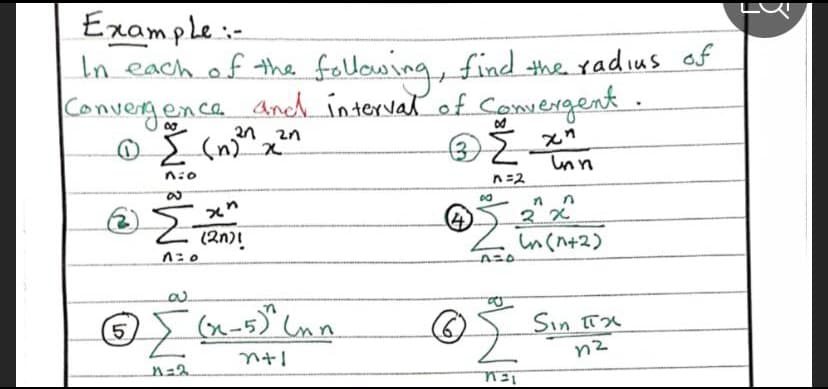 Example :-
In each of the following, find the radius of
Convergence and interval of Convergent .
① ∑_{n=0}^{∞} (n)^{2n} x^{2n}
③ ∑_{n=2}^{∞} x^n / ln n
② ∑_{n=0}^{∞} x^n / (2n)!
④ ∑_{n=0}^{∞} 2^n x^n / ln(n+2)
⑤ ∑_{n=2}^{∞} (x-5)^n ln n / n+1
⑥ ∑_{n=1}^{∞} Sin πx / n^2